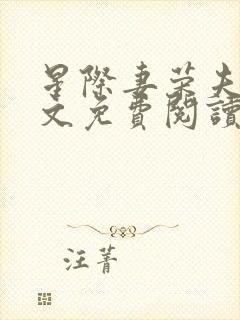 星際妻榮夫
文免費閱讀
汪菁